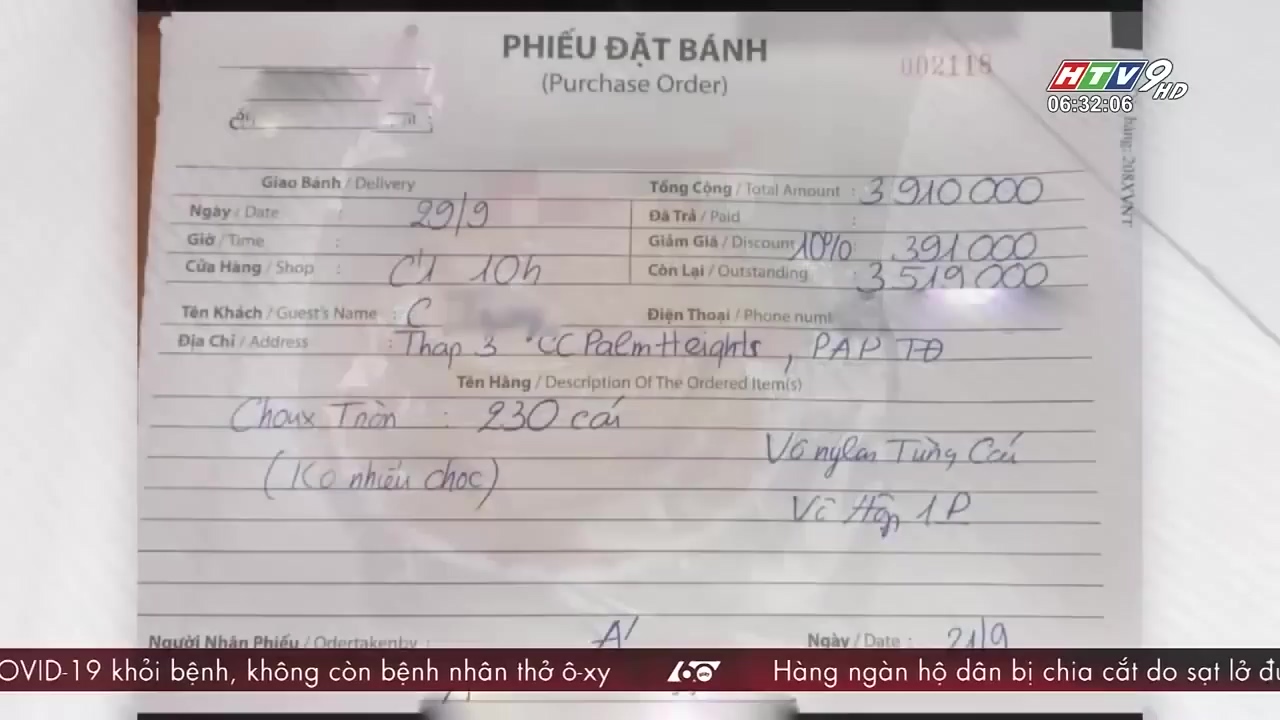 PHIẾU ĐẶT BÁNH
(Purchase Order)
002118
HTV9 HD
06:32:06
hàng: 208XVNT
Giao Bánh / Delivery
Ngày / Date : 29/9
Giờ / Time :
Cửa Hàng / Shop : C1 10h
Tổng Cộng / Total Amount : 3 910 000
Đã Trả / Paid :
Giảm Giá / Discount 10% : 391 000
Còn Lại / Outstanding : 3 519 000
Tên Khách / Guest's Name : C
Điện Thoại / Phone num
Địa Chỉ / Address : Thap 3 CC Palm Heights , PAP TĐ
Tên Hàng / Description Of The Ordered Item(s)
Choux Tròn : 230 cái
(Ko nhiều choc)
Vô nylan Từng Cái
Vô Hộp 1P
Người Nhận Phiếu / Odertakenby :
Ngày / Date : 21/9
OVID-19 khỏi bệnh, không còn bệnh nhân thở ô-xy
60 giây
Hàng ngàn hộ dân bị chia cắt do sạt lở đư